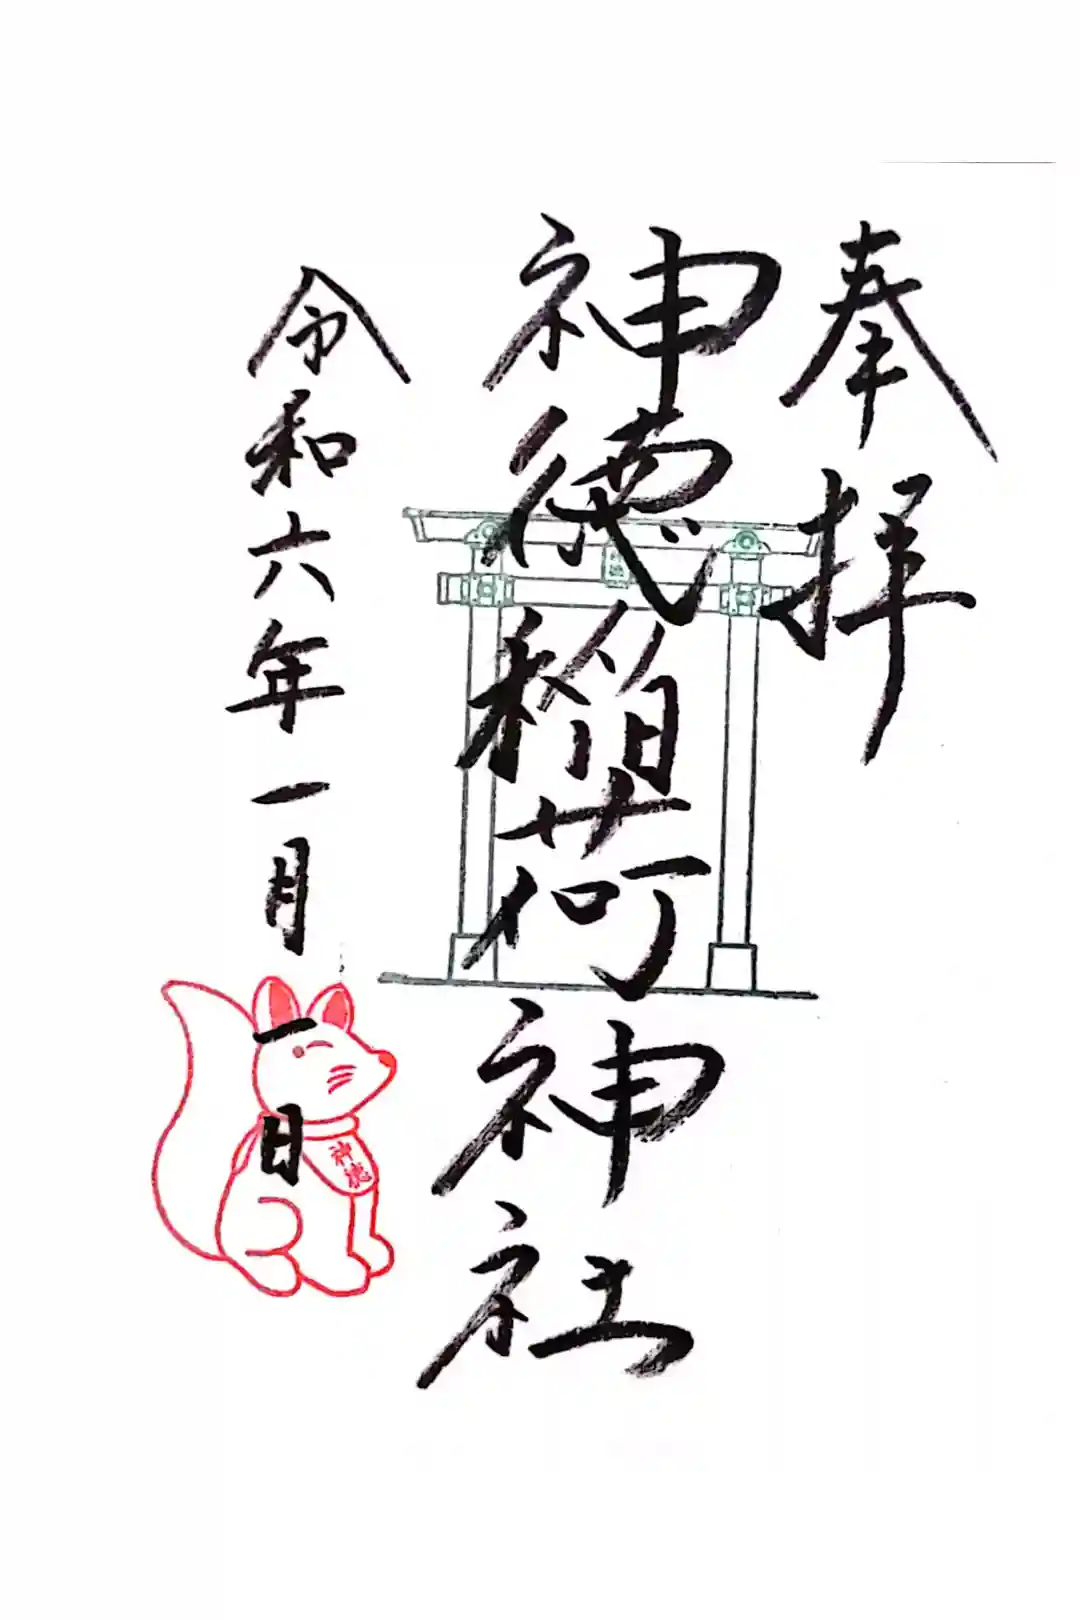 奉拝
神徳稲荷神社
令和六年一月一日
神徳